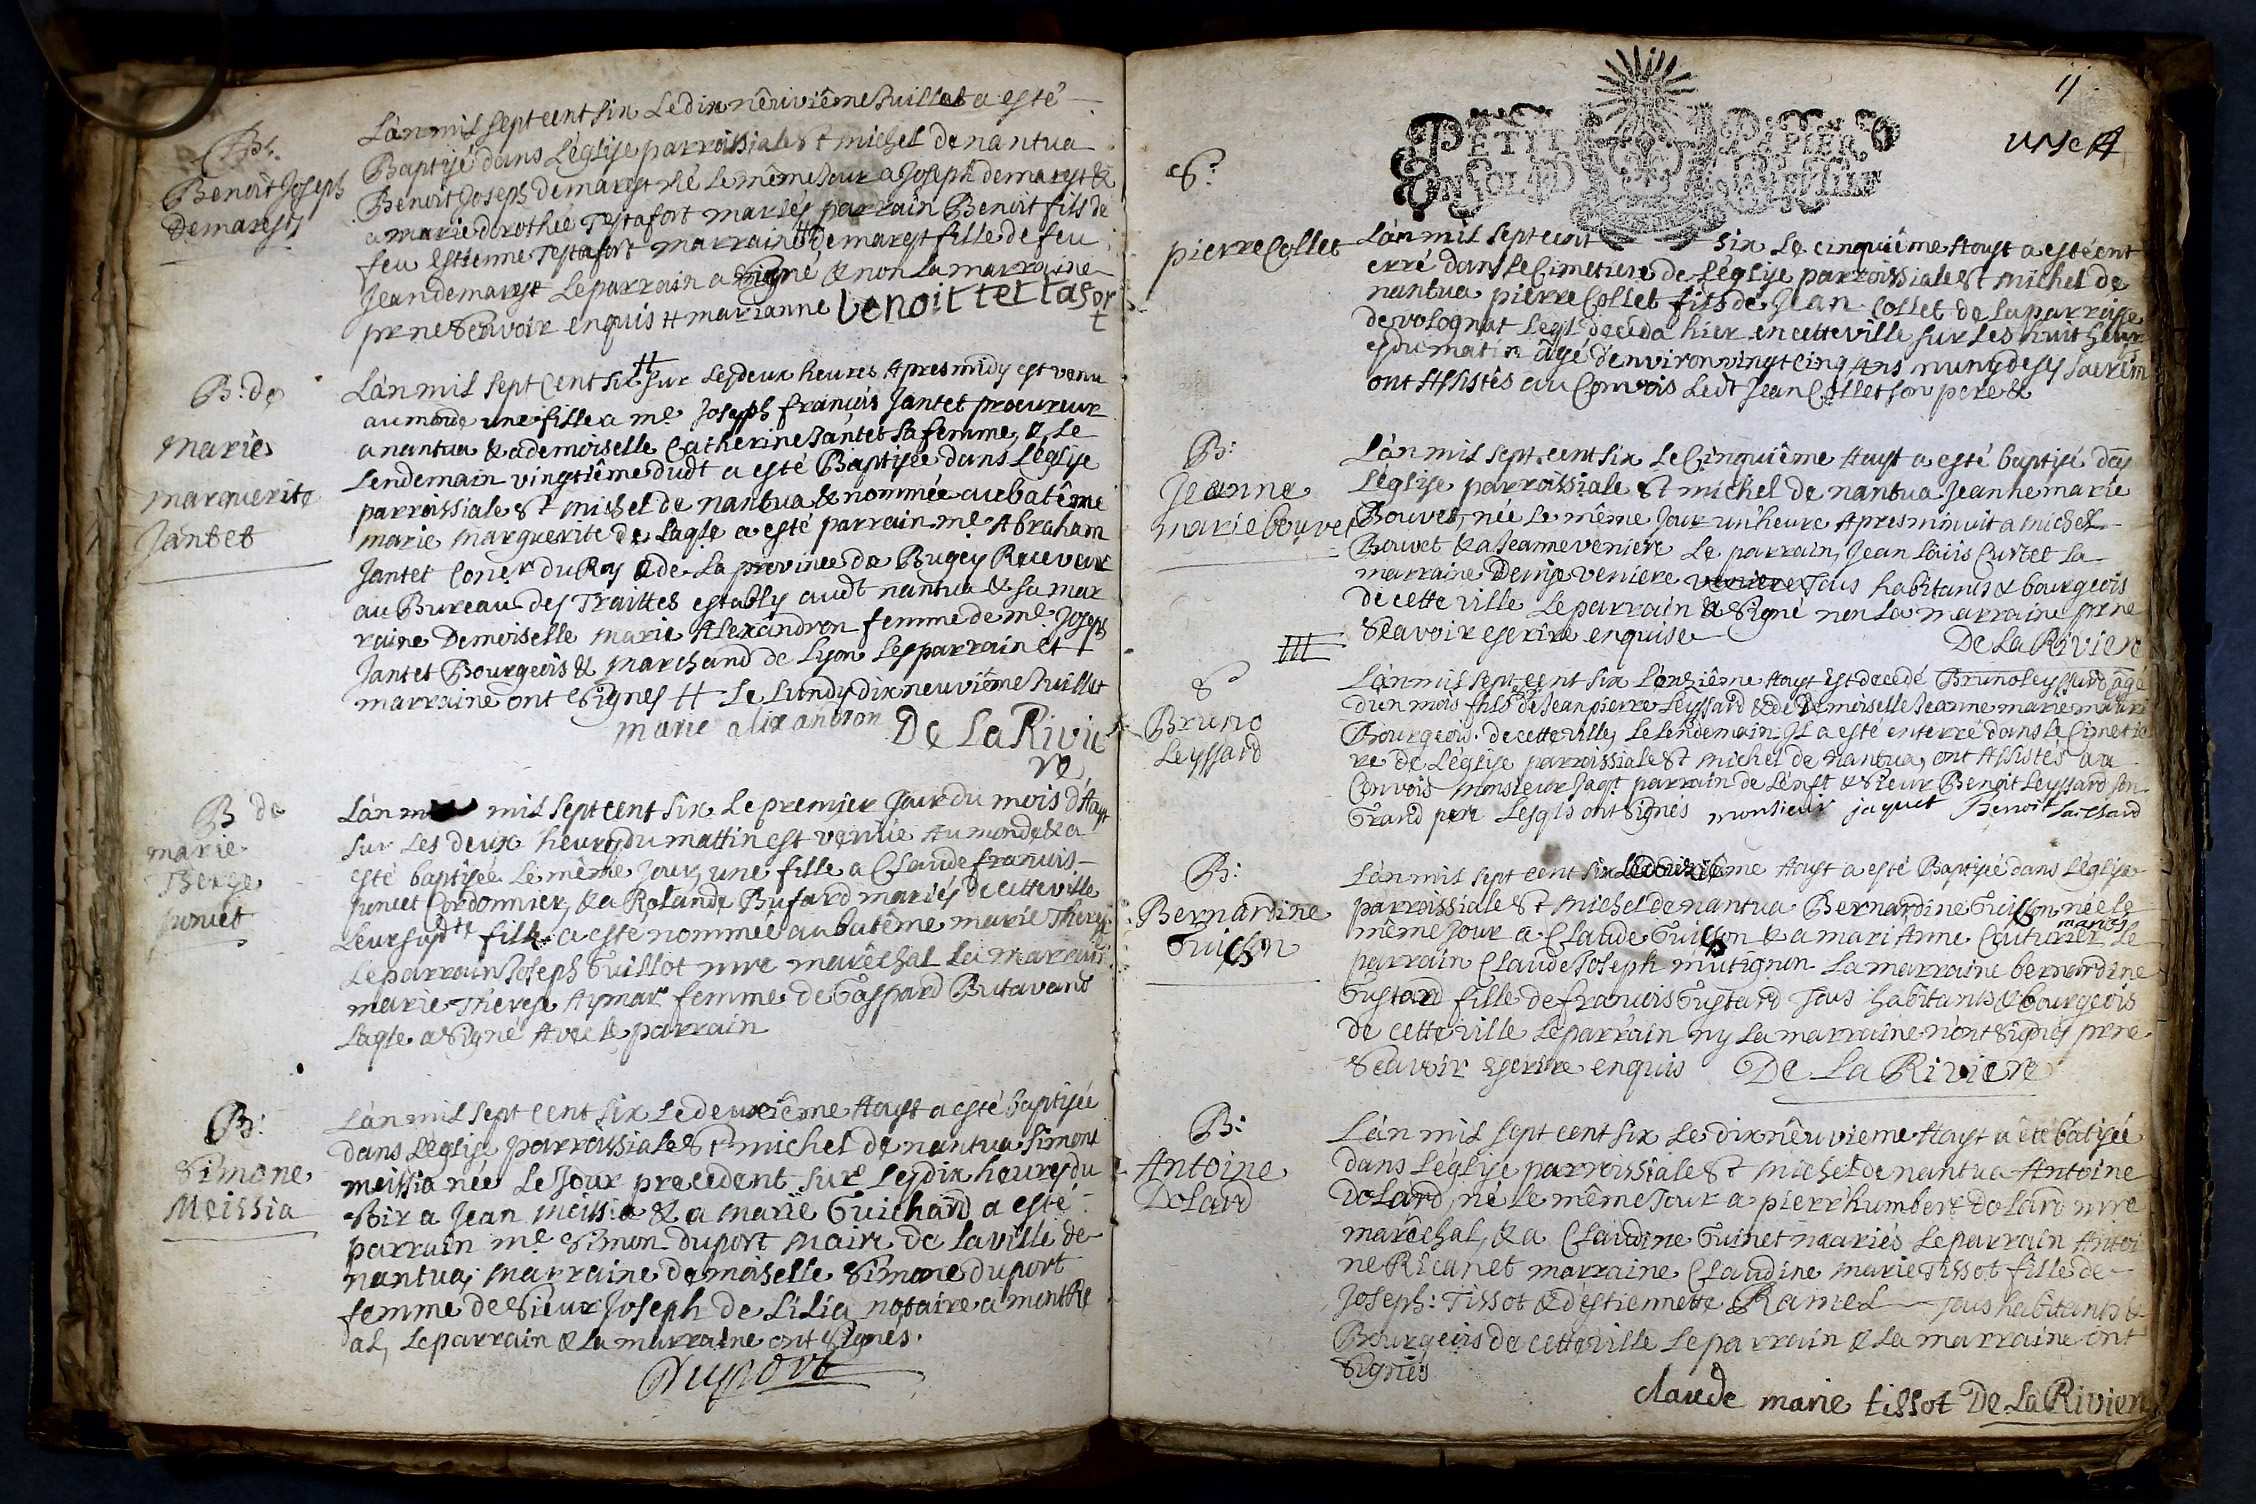 Bt.
Benoit Joseph
Demarest
Lan mil sept cent six Le dix neuviême Juillet a esté
Baptisé dans L'église parroissiale St michel de nantua
Benoit Joseph demarest né Le même Jour a Joseph demarest &
a marie dorothée Testafort mariés parrain Benoit fils de
feu Estienne Testafort marraine # demarest fille de feu
Jean demarest Le parrain a signé & non La marraine
pr ne Scavoir enquis # marianne benoit tettafor
t
B. de
marie
marguerite
Jantet
Lan mil sept Cent six # sur Les deux heures Apres midy est venu
au monde une fille a me. Joseph françois Jantet procureur
a nantua & a demoiselle Catherine Jantet sa femme, & Le
Lendemain vingtiême dudt a esté Baptisée dans L'église
parroissiale St michel de nantua & nommée au batême
marie marguerite de Laqle a esté parrain me. Abraham
Jantet Coner du Roy & de La province de Bugey Receveur
au Bureau des Traittes estably audt nantua & sa mar
raine Demoiselle marie Alexandron femme de me. Joseph
Jantet Bourgeois & marchand de Lyon Les parrain et
marraine ont Signes # Le Lundy dix neuviême Juillet
marie alixandron De La Rivie
re
B de
marie
Therese
Juncet
Lan mil sept cent six Le premier Jour du mois d'Aoust
sur Les deux heures du mattin est venüe Au monde & a
esté baptisée Le même Jour, une fille a Claude francois
Juncet Cordonnier, & a Rolande Bufard mariés de cette ville
Leur susdte fille a esté nommée au batême marie Therese
Le parrain Joseph Guillot mre maréchal La marraine
marie Therese Aymar femme de Gaspard Butavand
Laqle a Signé Avec Le parrain
B:
Simone
Meissia
Lan mil sept cent six Le deuxiême Aoust a esté baptisée
dans L'eglise parroissiale St michel de nantua Simone
meissia née Le Jour precedent sur Les dix heures du
soir a Jean meissia & a marie Guichard a esté
parrain me. Simon duport maire de La ville de
nantua, marraine demoiselle Simone duport
femme de Sieur Joseph de Lilia notaire a monthe
al, Le parrain & La marraine ont Signés.
Duport
11
unse
PETIT PAPIER
UN SOL LA FEUILLE
S.
pierre Collet
Lan mil sept cent six Le cinquiême Aoust a esté ent
erré dans le Cimetiere de L'église parroissiale St michel de
nantua pierre Collet fils de Jean Collet de La parroisse
de volognat Leql deceda hier en cette ville sur Les huit heur
es du matin âgé denviron vingt cinq Ans muny de ses Sacrem
ont Assistés au Convois Ledt Jean Collet son pere &
B:
Jeanne
marie bouvet
Lan mil sept cent six Le Cinquiême Aoust a esté baptisé dans
L'église parroissiale St michel de nantua Jeanne marie
Bouvet, née Le même Jour un'heure Apres minuit a michel
Bouvet & a Jeanne veniere Le parrain, Jean Loüis Curtet La
marraine Denise veniere veniere Tous habitants & bourgeois
de cette ville Le parrain a Signé non La marraine pr ne
Scavoir escrire enquise
De La Riviere
S
Bruno
Leyssard
Lan mil sept cent six L'onziême Aoust est decedé Bruno Leyssard âgé
d'un mois fils de Jean pierre Leyssard & de Demoiselle Jeanne marie
Bourgeois de cette ville, Le Lendemain Il a esté enterré dans Le Cimetie
re de L'église parroissiale St michel de nantua, ont Assistés au
Convois monsieur Jaqt parrain de L'enft & Sieur Benoit Leyssard son
Grand pere Lesqls ont Signés monsieur jaquet Benoit Laissard
B:
Bernardine
Guisson
Lan mil sept cent six Le douziême Aoust a esté Baptisée dans L'église
parroissiale St michel de nantua Bernardine Guisson née le
même Jour a Claude Guisson & a mari Anne Couturier mariés Le
parrain Claude Joseph mutignon La marraine bernardine
Gustard fille de francois Gustard Tous habitants & bourgeois
de cette ville Le parrain ny La marraine n'ont Signés pr ne
Scavoir Escrire enquis De La Riviere
B:
Antoine
Dolard
Lan mil sept cent six Le dix nêuvieme Aoust a êté bâtisé
dans L'église parroissiale St michel de nantua Antoine
Dolard, né le même Jour a pierr'humbert dolard mre
marêchal, & a Claudine Guinet mariés Le parrain Antoi
ne Ricanet marraine Claudine marie Tissot fille de
Joseph: Tissot & d'estiennette Ramel Tous habitants &
Bourgeois de cette ville Le parrain & La marraine ont
Signés
claude marie tissot De La Rivier